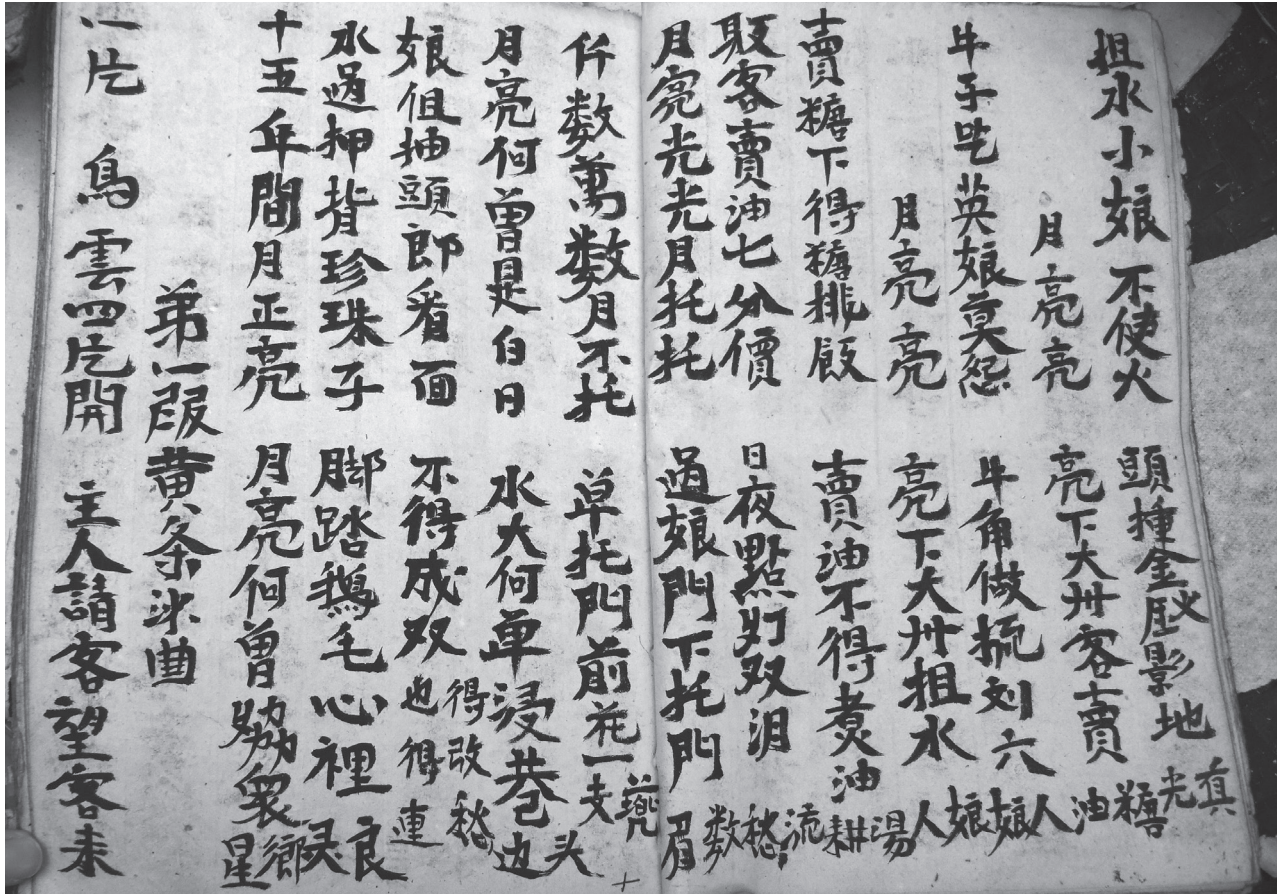 担水小娘不使火 頭揷金釵影地真光
月亮亮 亮下大州客賣糖油
牛子吃英娘莫怨 牛角做梳刘六娘人
月亮亮 亮下大州担水人娘
賣糖下得糖排殿 賣油不得煑油湯耕
取客賣油七分價 日夜點灯双泪流愁
月亮光光月托托 過娘門下托門数眉
仟数萬数月不托 草托門前花一支蔸
月亮何曽是白日 水大何单浸巷边头
娘但抽頭郎看面 不得成双也得連得改愁
水過押背珍珠子 脚踏鵝毛心裡良灵
十五年間月正亮 月亮何曽勝衆鄉星
第一段黄条沙曲
一片烏雲四片開 主人請客望客来